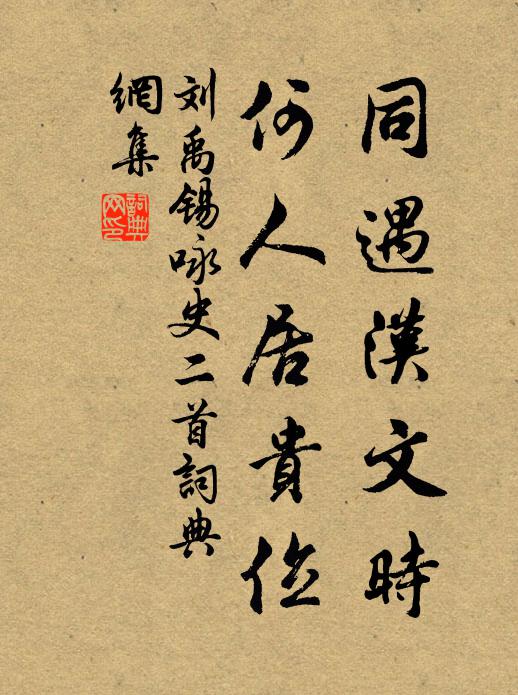 同遇漢文時
何人居貴位
刘禹锡咏史二首詞典
網集
詞典网印